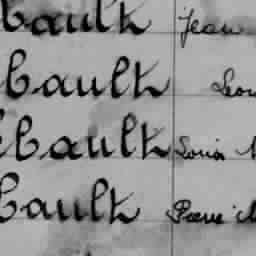 bault Jean
bault Leon
bault Louis
bault Pierre M